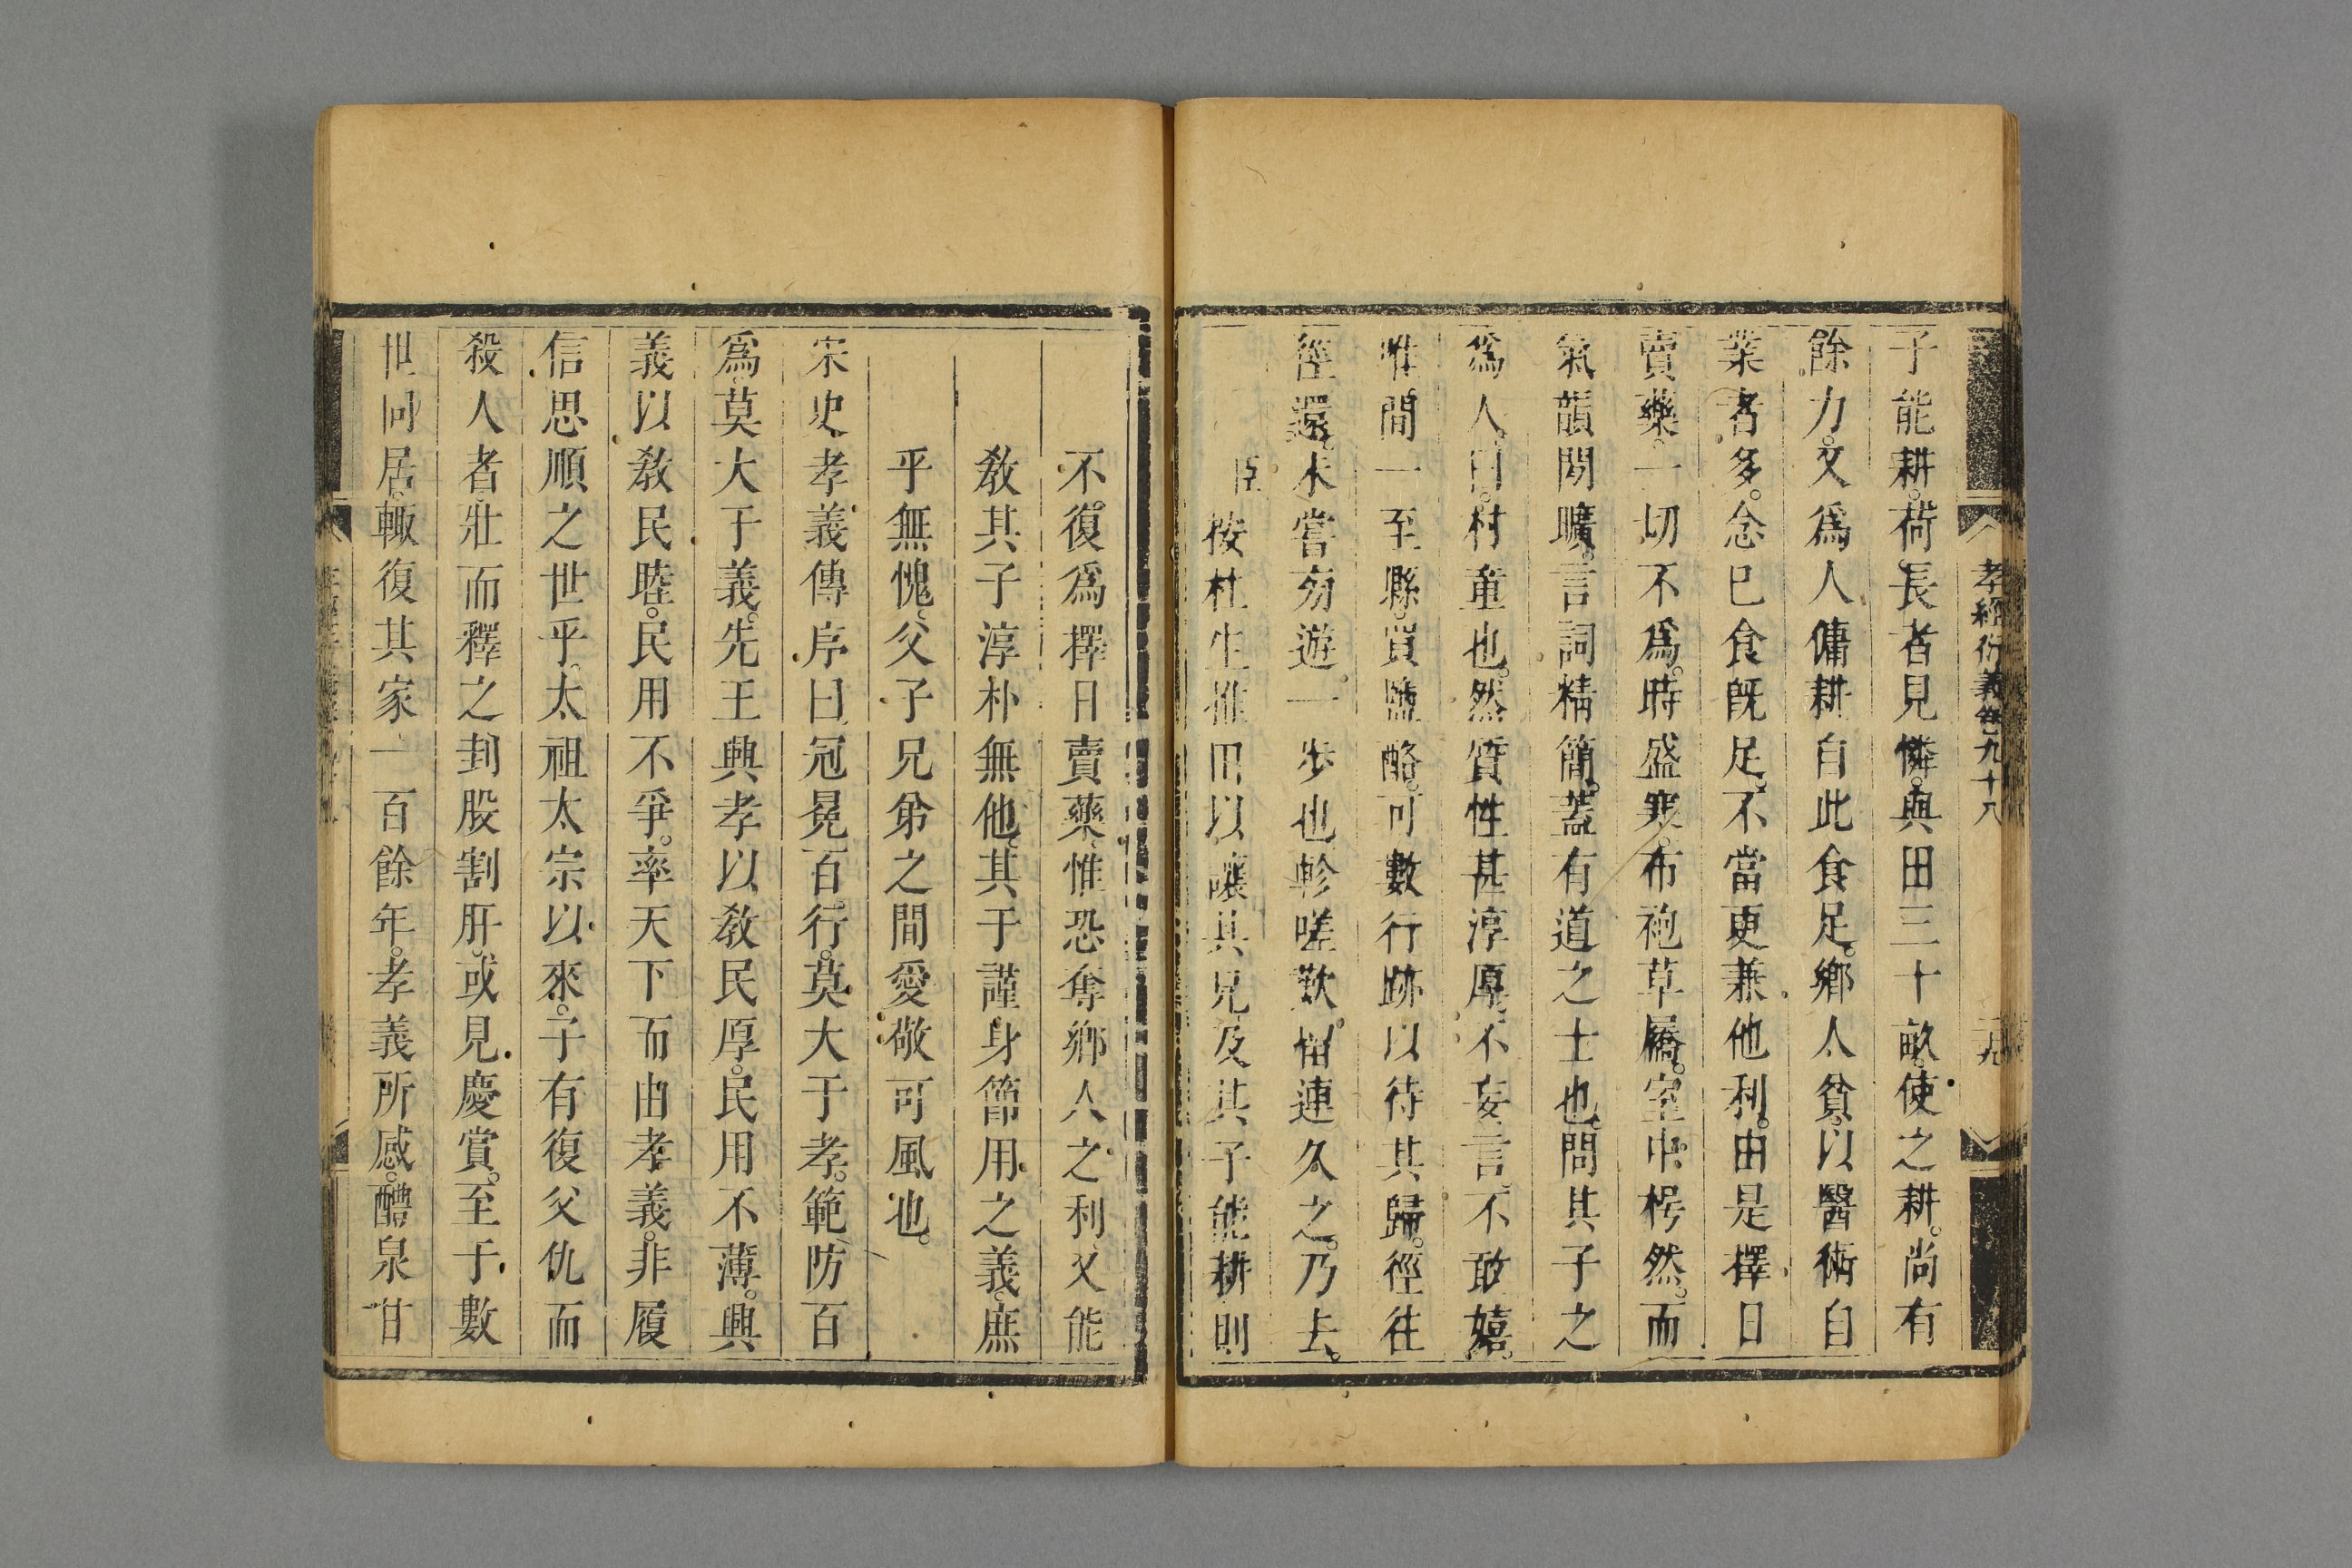 孝經衍義卷九十八
子能耕。荷長者見憐。與田三十畝。使之耕。尚有
餘力。又爲人傭耕。自此食足。鄉人貧。以醫術自
業者多。念已食旣足。不當更兼他利。由是擇日
賣藥。一切不爲。時盛寒。布袍草屩。室中枵然。而
氣韻閒曠。言詞精簡。蓋有道之士也。問其子之
爲人。曰。村童也。然質性甚淳厚。不妄言。不敢嬉。
惟間一至縣。買鹽酪。可數行跡以待其歸。徑往
徑還。未嘗旁遊一步也。軫嗟歎。留連久之。乃去。
臣按杜生推田以讓其兄及其子能耕則
不。復爲擇日賣藥。惟恐奪鄉人之利。又能
敎其子淳朴無他。其于謹身節用之義。庶
乎無愧。父子兄弟之間愛敬可風也。
宋史孝義傳序曰。冠冕百行。莫大于孝。範防百
爲。莫大于義。先王興孝以敎民厚。民用不薄。興
義以敎民睦。民用不爭。率天下而由孝義。非履
信思順之世乎。太祖太宗以來。子有復父仇而
殺人者壯而釋之。刲股割肝。或見慶賞。至于數
世同居。輒復其家。一百餘年。孝義所感。醴泉甘